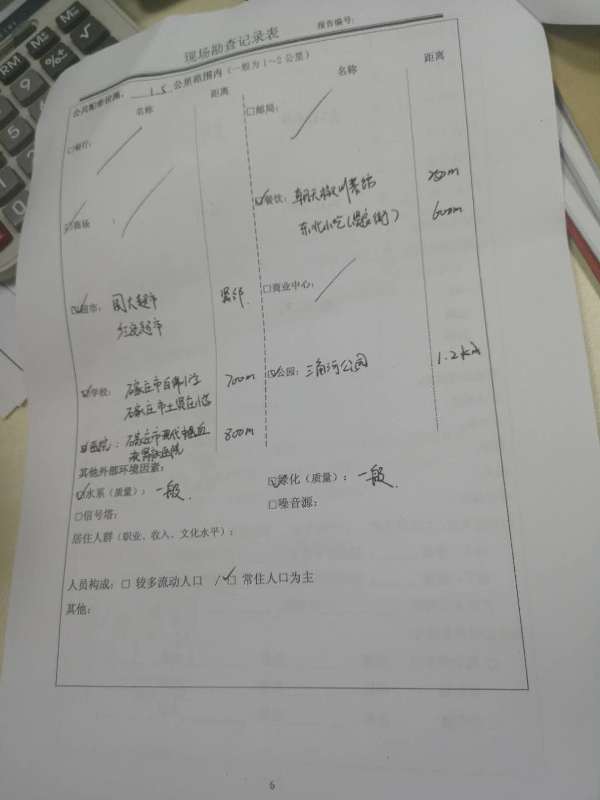 现场勘查记录表
报告编号:
公共配套设施, 1.5 公里范围内(一般为1~2公里)
名称 距离 名称 距离
□银行: □邮局:
☑餐饮: 朝天椒川菜馆 250m
□商场 : 东北小吃 600m
☑超市: 国大超市 紧邻. □商业中心:
红 超市
☑学校: 石家庄市 小学 700m ☑公园: 三角河公园 1.2km
石家庄市 小学
☑医院: 石家庄市现代 800m
医院
其他外部环境因素:
☑水系(质量): 一般. ☑绿化(质量): 一般.
□信号塔: □噪音源:
居住人群(职业、收入、文化水平):
人员构成: □ 较多流动人口 / ☑ 常住人口为主
其他:
6
RM
M-
M=
%
√
9
8
5
6